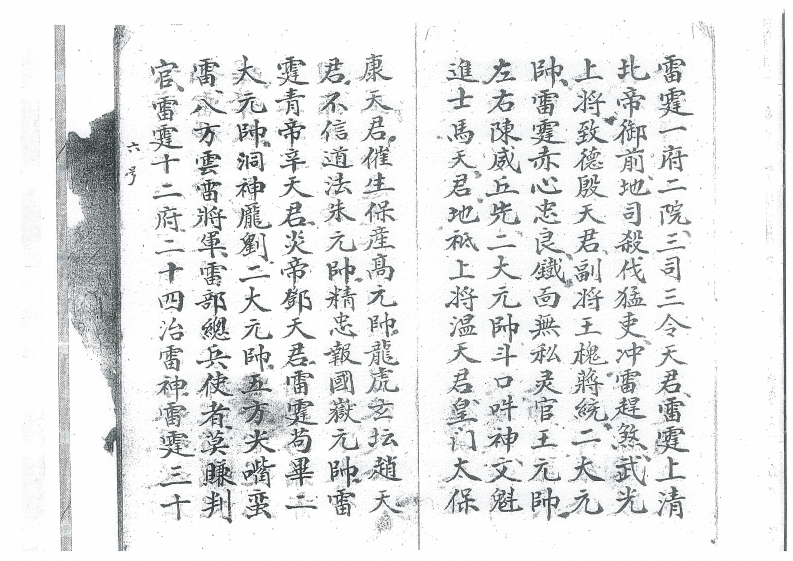 雷霆一府二院三司三令天君雷霆上清
北帝御前地司殺伐猛吏冲雷趕煞武光
上將致德殷天君副將王槐蔣統二大元
帥雷霆赤心忠良鐵面無私灵官王元帥
左右陳威丘先二大元帥斗口吽神文魁
進士馬天君地祇上將溫天君皇门太保
康天君催生保產高元帥龍虎玄坛趙天
君不信道法朱元帥精忠報國嶽元帥雷
霆青帝辛天君炎帝鄧天君雷霆苟畢二
大元帥洞神龐劉二大元帥五方尖嘴蛮
雷八方雲雷將軍雷部總兵使者莫賺判
官雷霆十二府二十四治雷神雷霆三十
六号